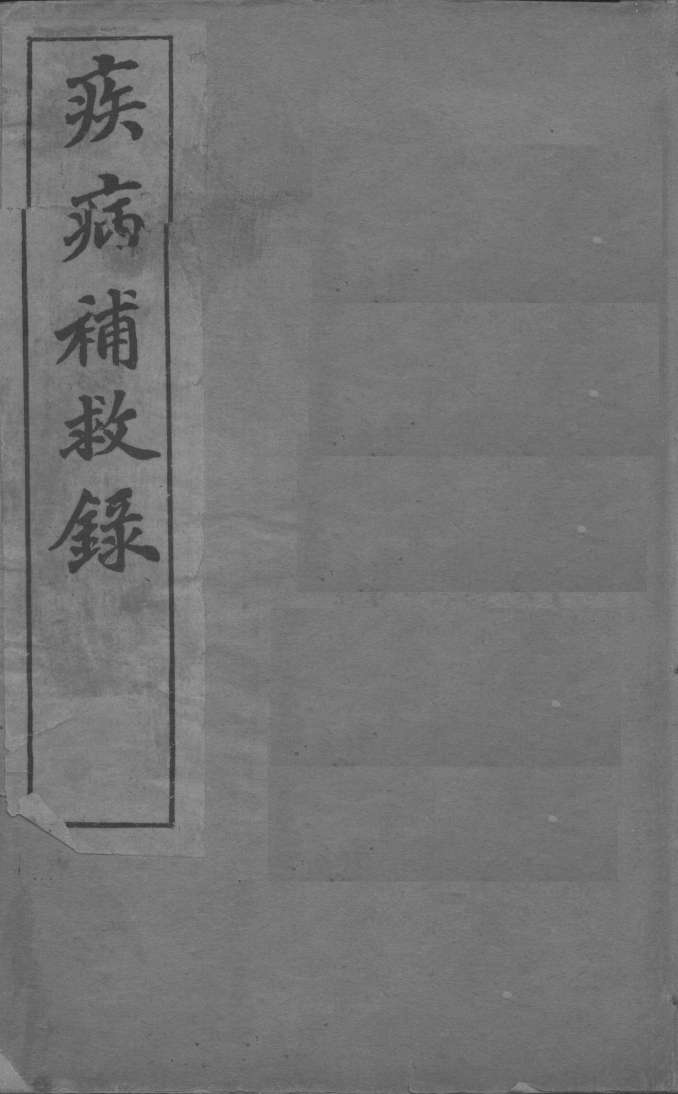 疾病補救錄